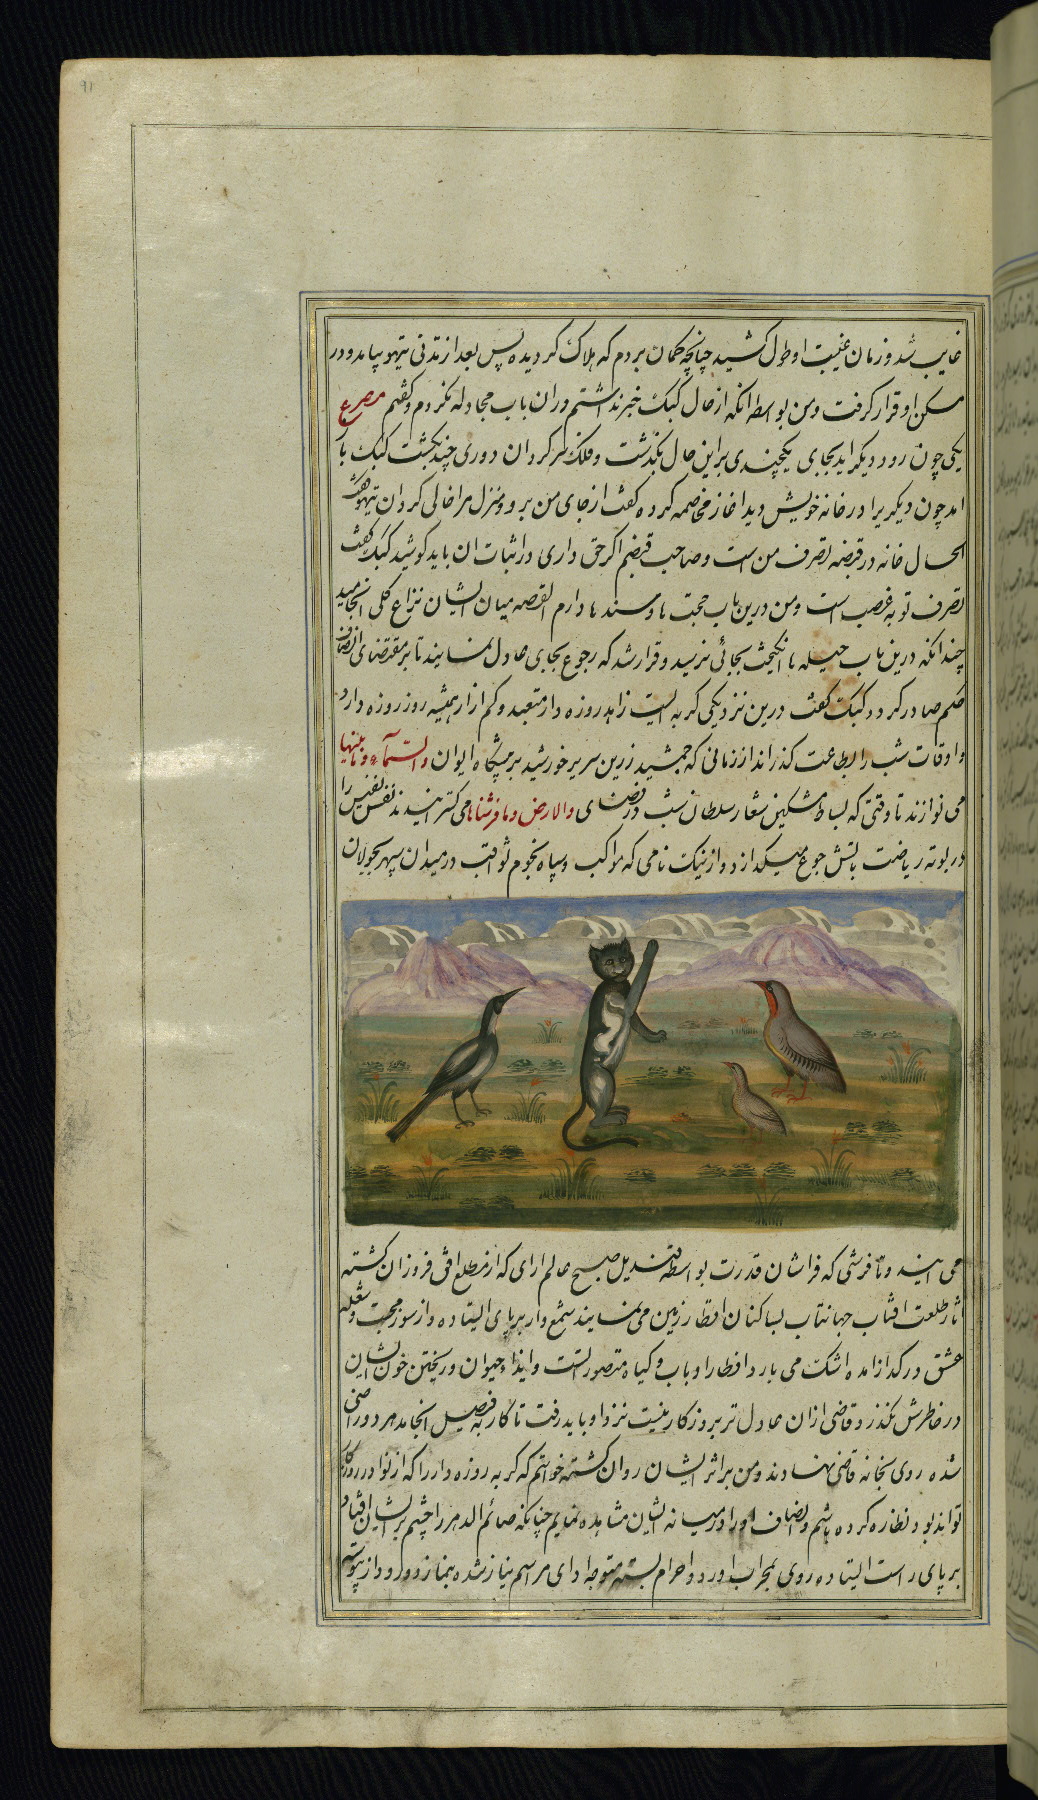 ۹۱
غایب شد و زمان غیبت او طول کشید چنانچه گمان بردم که هلاک گردیده پس بعد از مدتی تیهو بیامد و در
مسکن او قرار گرفت و من بواسطه انکه از حال کبک خبر نداشتم در ان باب مجادله نکردم و گفتم مصرع
یکی چون رود دیگر اید بجای یکچندی براین حال بگذشت و فلک سرگردان دوری چند بگشت کبک باز
امد چون دیگریرا در خانه خویش دید اغاز مخاصمه کرده گفت از جای من برو و منزل مرا خالی گردان تیهو گفت
الحال خانه در قبضه تصرف من است و صاحب قبضم اگر حقی داری در اثبات ان باید کوشید کبک گفت
تصرف تو به غصب است و من درین باب حجت ها و سند ها دارم القصه میان ایشان نزاع کلی انجامید
چندانکه درین باب حیله ها انگیخت بجائی نرسید و قرار شد که رجوع بجای عادل نمایند تا بر مقتضای انصاف
حکم صادر گردد کبک گفت درین نزدیکی گربه ایست زاهد روزه دار متعبد و کم ازار همیشه روز روزه دارد
و اوقات شب را بطاعت گذراند از زمانی که جمشید زرین سریر خورشید بر پیشگاه ایوان والسماء وما بنیها
می نوازند تا وقتی که بساط مشکین شعار سلطان شب در فضای والارض وما فرشناها می گسترانیدند نفس نفیس را
در بوته ریاضت باتش جوع میگدازد و از نیک نامی که مواکب و سپاه نجوم ثواقب در میدان سپهر بجولان
می ایند و تا فرشی که فراشان قدرت بواسطه قندیل صبح عالم ارای که از مطلع افق فروزان گشته
اثار طلعت افتاب جهانتاب بساکنان اقطار زمین می نمایند شمع وار بر پای ایستاده و از سوز محبت و شعله
عشق در گداز امده اشک می بارد افطار او باب و گیاه متصور است و ایذاء حیوان و ریختن خون ایشان
در خاطرش نگذرد و قاضی ازان عادل تر بروزگار نیست نزد او باید رفت تا کار به فیصل انجامد هر دو راضی
شده روی بخانه قاضی نهادند و من بر اثر ایشان روان گشته خواستم که گربه روزه دار را که از نوادر روزگار
تواند بود نظاره کرده باشم و انصاف او را در میانه ایشان مشاهده نمایم چنانکه صائم الدهر را چشم بر ایشان افتاد
بر پای راست ایستاده روی بمحراب اورد و احرام بسته متوجه ادای مراسم نیاز شده بنماز درود و از پیوسته